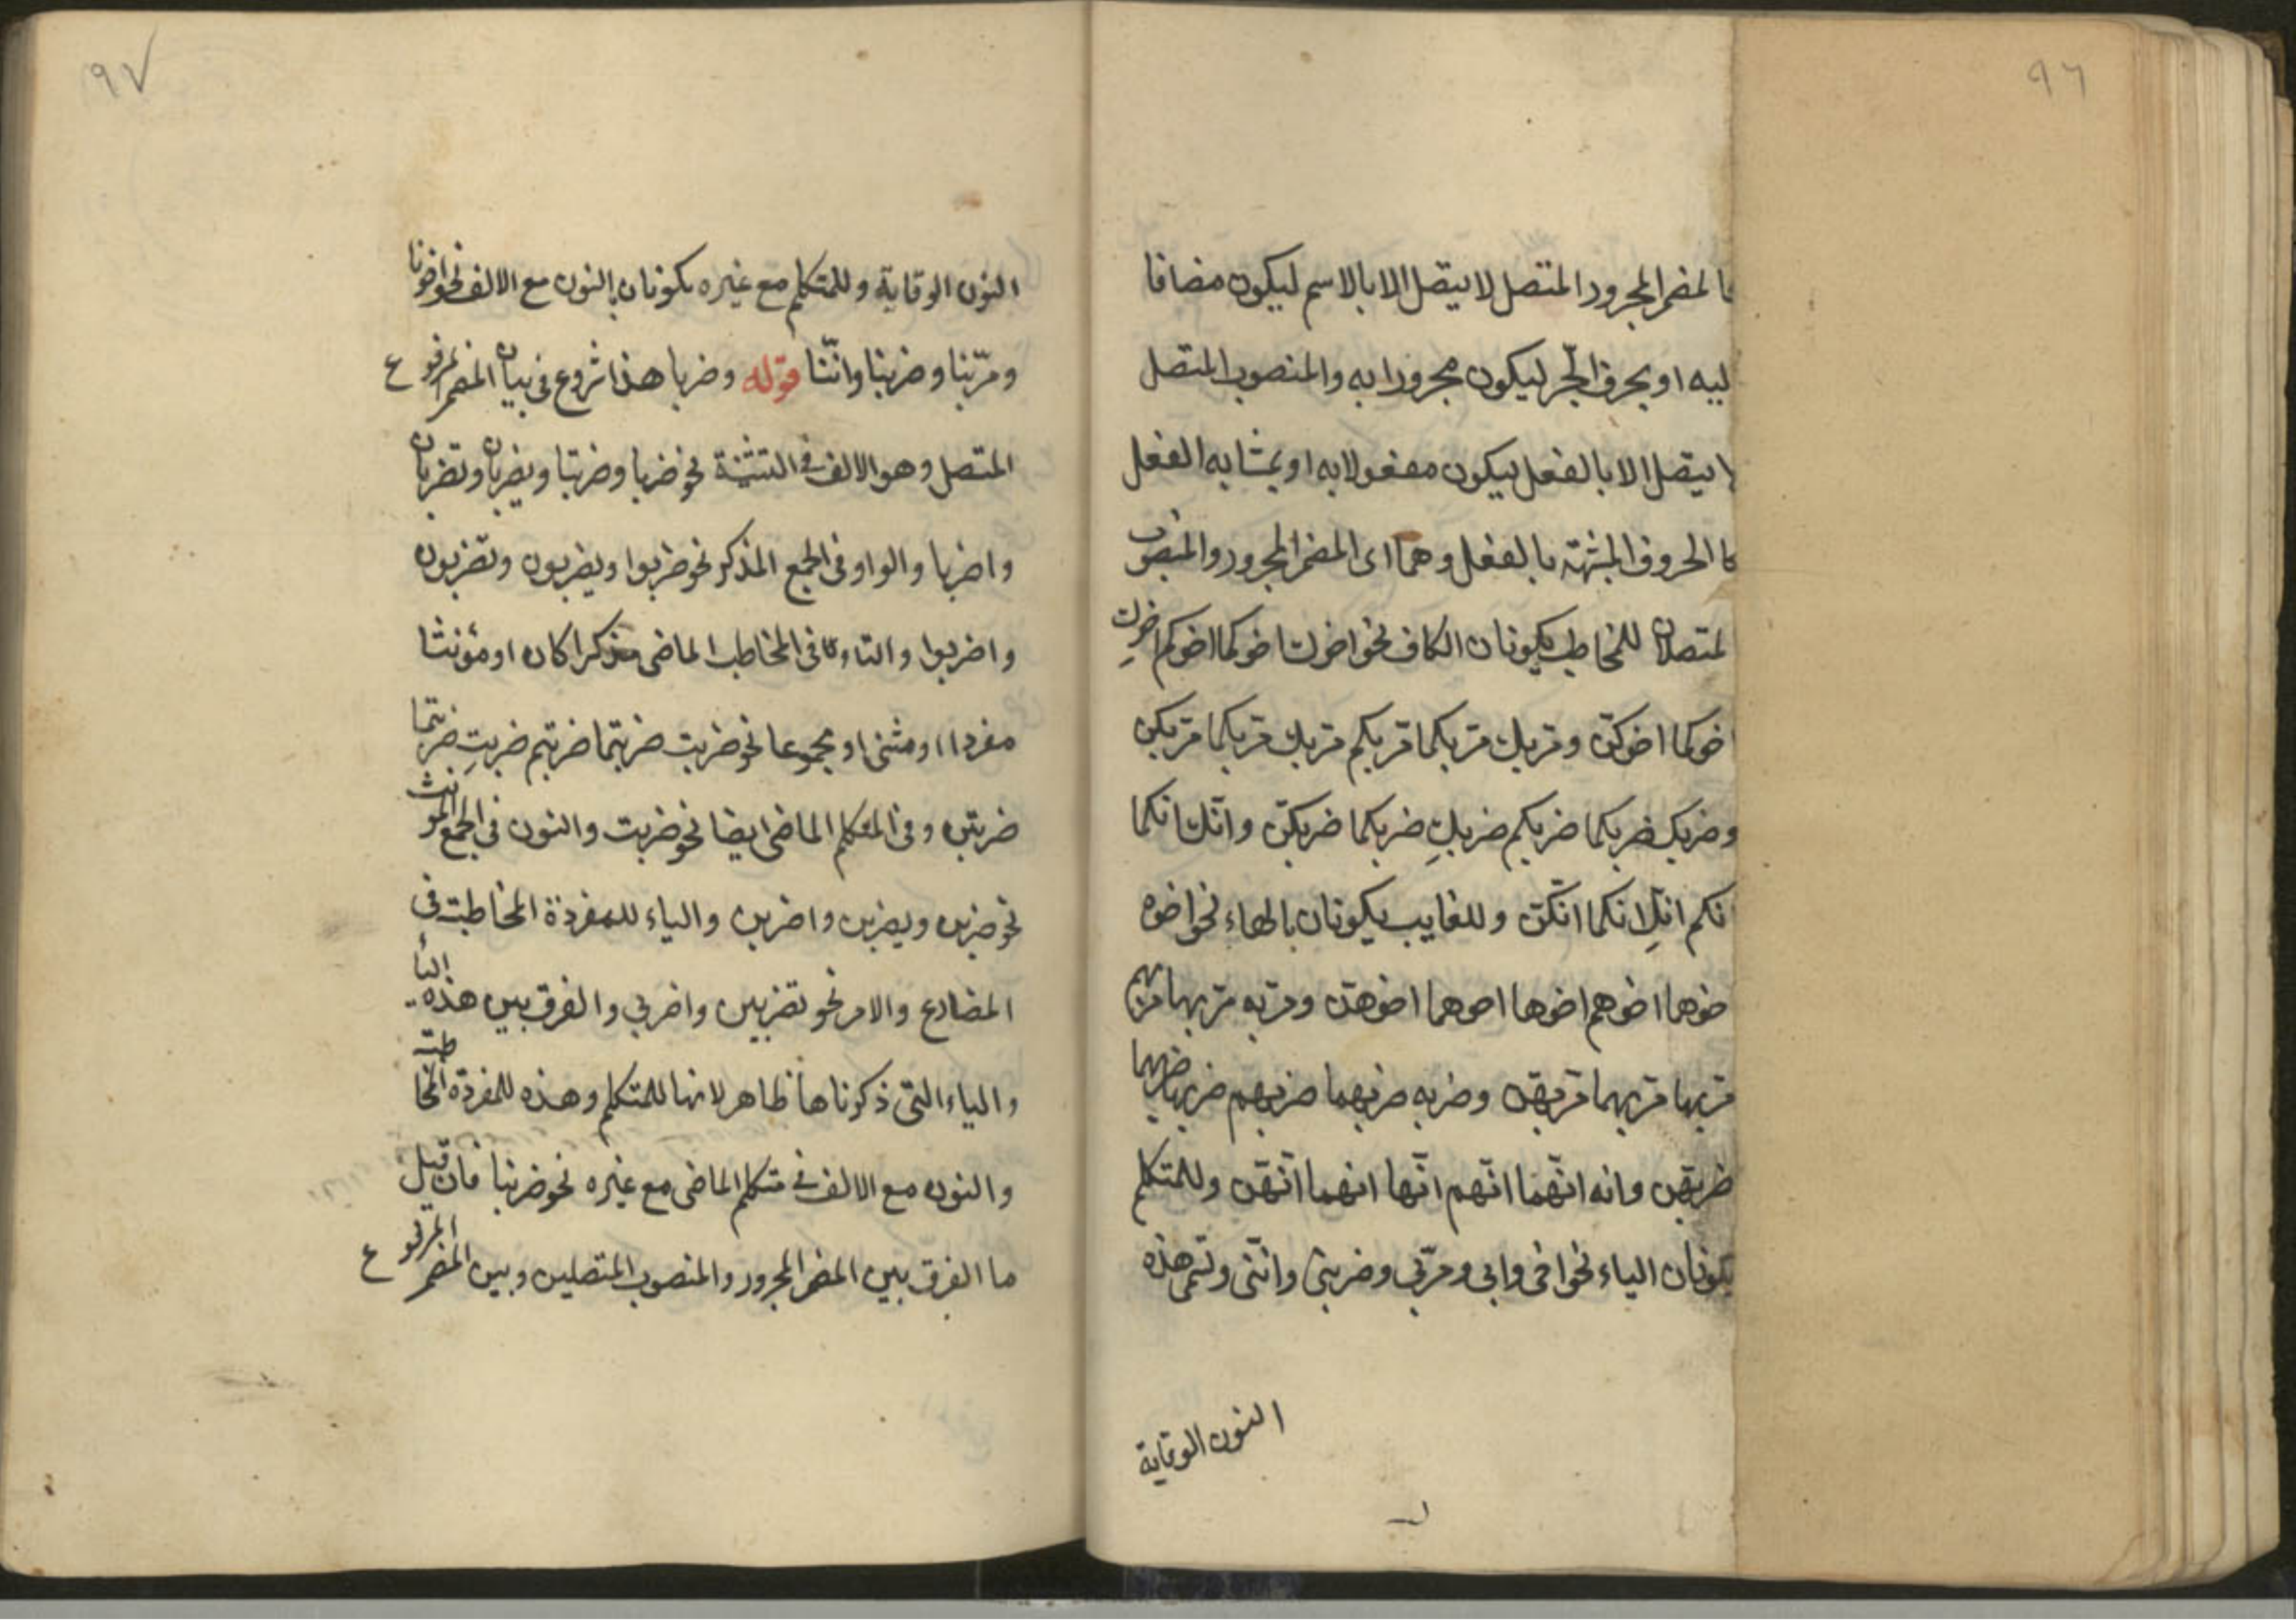 ٩٦
المضمر المجرور المتصل لا يتصل الا بالاسم ليكون مضافا
ليه او بحرف الجّر ليكون مجرورا به والمنصوب المتصل
لا يتصل الا بالفعل ليكون مفعولا به او بمشابه الفعل
كا الحروف المشبهة بالفعل وهما اى المضمر المجرور والمنصوب
لمتصلان للمخاطب يكونان الكاف نحو اخوك اخوكما اخوكم اخوكِ
اخوكما اخوكنّ ومرّبك مرّبكما مرّبكم مرّبك مرّبكما مرّبكن
وضربك ضربكما ضربكم ضربكِ ضربكما ضربكنّ وانّك انكما
انكم انكِ انكما انكنّ وللغايب يكونان بالهاء نحو اخوه
خوهما اخوهم اخوها اخوهما اخوهنّ ومرّبه مرّبهما مرّبهم
مرّبها مرّبهما مرّبهنّ وضربه ضربهما ضربهم ضربها ضربهما
ضربهنّ وانه انّهما انّهم انّها انهما انّهنّ وللمتكلم
يكونان الياء نحو اخى وابى ومرّبى وضربنى وانّنى وتسمى هذه
النون الوقاية
٩٧
النون الوقاية وللمتكلم مع غيره يكونان بالنون مع الالف نحو اخونا
ومرّبنا وضربنا وانّنا قوله وضربا هذا شروع فى بيان المضمر المرفوع
المتصل وهو الالف فى التثنية نحو ضربا وضربتا ويضربان وتضربان
واضربا والواو فى الجمع المذكر نحو ضربوا ويضربون وتضربون
واضربوا والتاء فى المخاطب الماضى مذكرا كان او مؤنثا
مفردا او مثنى او مجموعا نحو ضربت ضربتما ضربتم ضربتِ ضربتما
ضربتن وفى المتكلم الماضى ايضا نحو ضربت والنون فى الجمع المؤنث
نحو ضربن ويضربن واضربن والياء للمفردة المخاطبت فى
المضارع والامر نحو تضربين واضربى والفرق بين هذه الياء
والياء التى ذكرناها ظاهر لانها للمتكلم وهذه للمفردة المخاطبة
والنون مع الالف فى متكلم الماضى مع غيره نحو ضربنا فان قيل
ما الفرق بين المضمر المجرور والمنصوب المتصلين وبين المضمر المرفوع